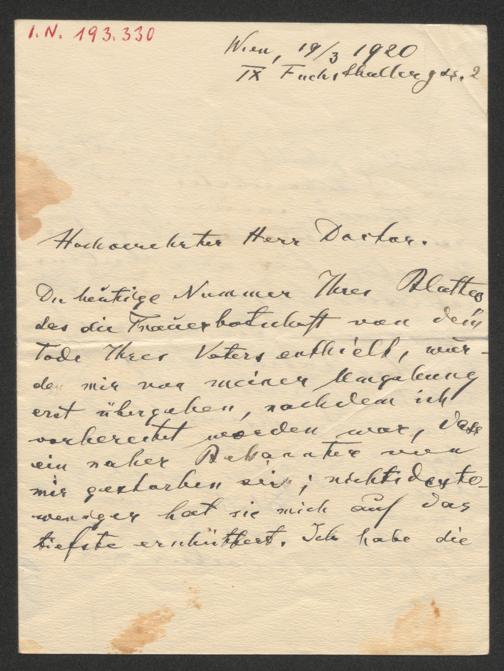 I.N. 193.330
Wien, 19/3 1920
IX Fuchsthallergas. 2
Hochverehrter Herr Doctor.
Die heutige Nummer Ihres Blattes
das die Trauerbotschaft von dem
Tode Ihres Vaters enthielt, wur-
de mir von meiner Umgebung
erst übergeben, nachdem ich
vorbereitet worden war, dass
ein naher Bekannter von
mir gestorben sei; nichtsdesto-
weniger hat sie mich auf das
tiefste erschüttert. Ich habe die